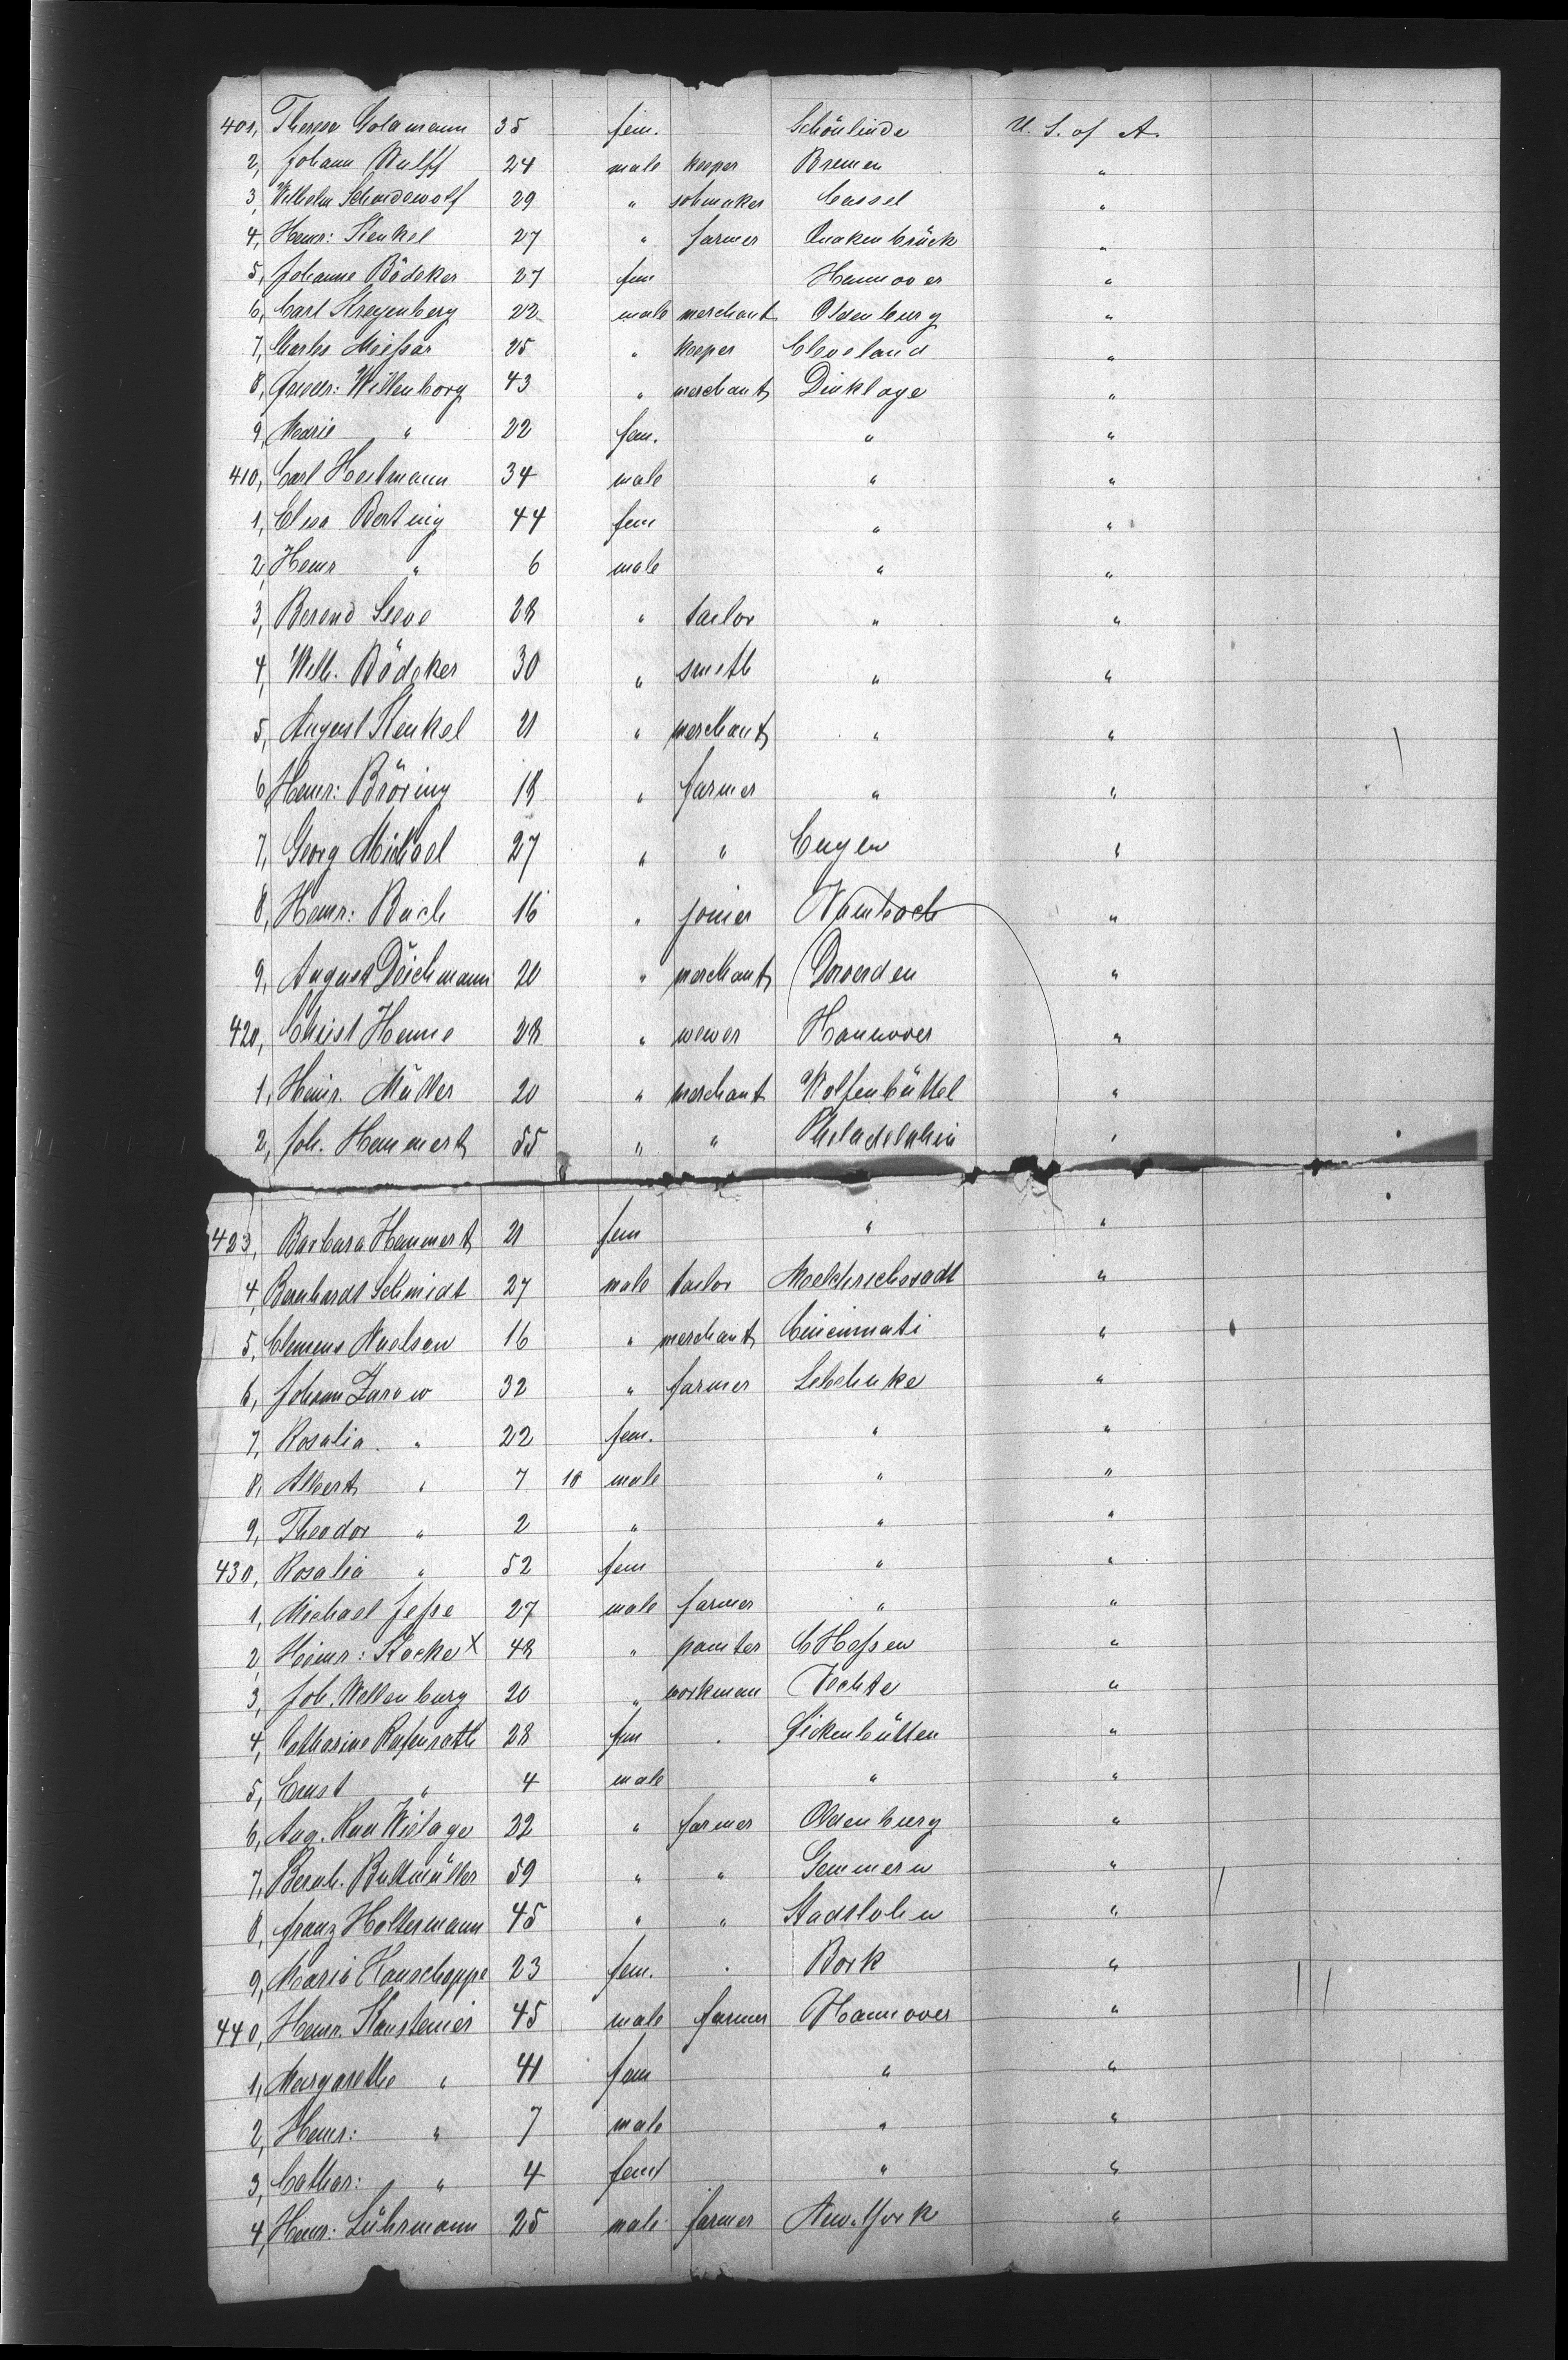 401, Therese Goldmann 35 fem. Schönlinde U. S. of A.
2, Johann Wulff 24 male keeper Bremen "
3, Wilhelm Schmidewolf 29 " sohmaker Cassel "
4, Heinr: Henkel 27 " farmer Quakenbrück "
5, Johanne Bödeker 27 fem Hannover "
6, Carl Stregenberg 22 male merchant Oldenburg "
7, Charles 25 " keeper Cleveland "
8, Willenborg 43 " merchant Dinklage "
9, Marie " 22 fem. " "
410, Carl Heilmann 34 male " "
1, Elisa Berting 44 fem " "
2, Heinr " 6 male " "
3, Berend Sieve 28 " tailor " "
4, Wilh. Bödeker 30 " smith " "
5, August Henkel 21 " merchant " "
6, Heinr: Bröring 18 " farmer " "
7, Georg Michael 27 " " "
8, Heinr: Buch 16 " joiner Wambach "
9, August Döichmann 20 " merchant Dorverden "
420, Christ Henne 28 " wewer Hannover "
1, Heinr. Müller 20 " merchant Wolfenbüttel "
2, Joh. Hemmert 55 " " Philadelphia "
423, Barbara Hemmert 21 fem " "
4, Bernhardt Schmidt 27 male tailor Melchrichsadt "
5, Clemens Nuelsen 16 " merchant Cincinnati "
6, Johann Zarow 32 " farmer Lebehnke "
7, Rosalia " 22 fem. " "
8, Albert " 7 10 male " "
9, Theodor " 2 " " "
430, Rosalia " 52 fem " "
1, Michael Jesse 27 male farmer " "
2, Heinr: Kocke X 48 " painter C Hessen "
3, Joh. Wellenburg 20 " workman Vechte "
4, Catharine Rasenrath 28 fem . Fickenhütten "
5, Ernst " 4 male " "
6, Aug. Wielage 22 " farmer Oldenburg "
7, Bernh. Bultmüller 59 " " Gemmern "
8, Franz Holtermann 45 " " Stadtlohn "
9, Maria Hanschoppe 23 fem. . Bork "
440, Heinr. Kansteiner 45 male farmer Hannover "
1, Margarethe " 41 fem " "
2, Heinr: " 7 male " "
3, Cathar: " 4 fem " "
4, Heinr: Lührmann 25 male farmer New-York "